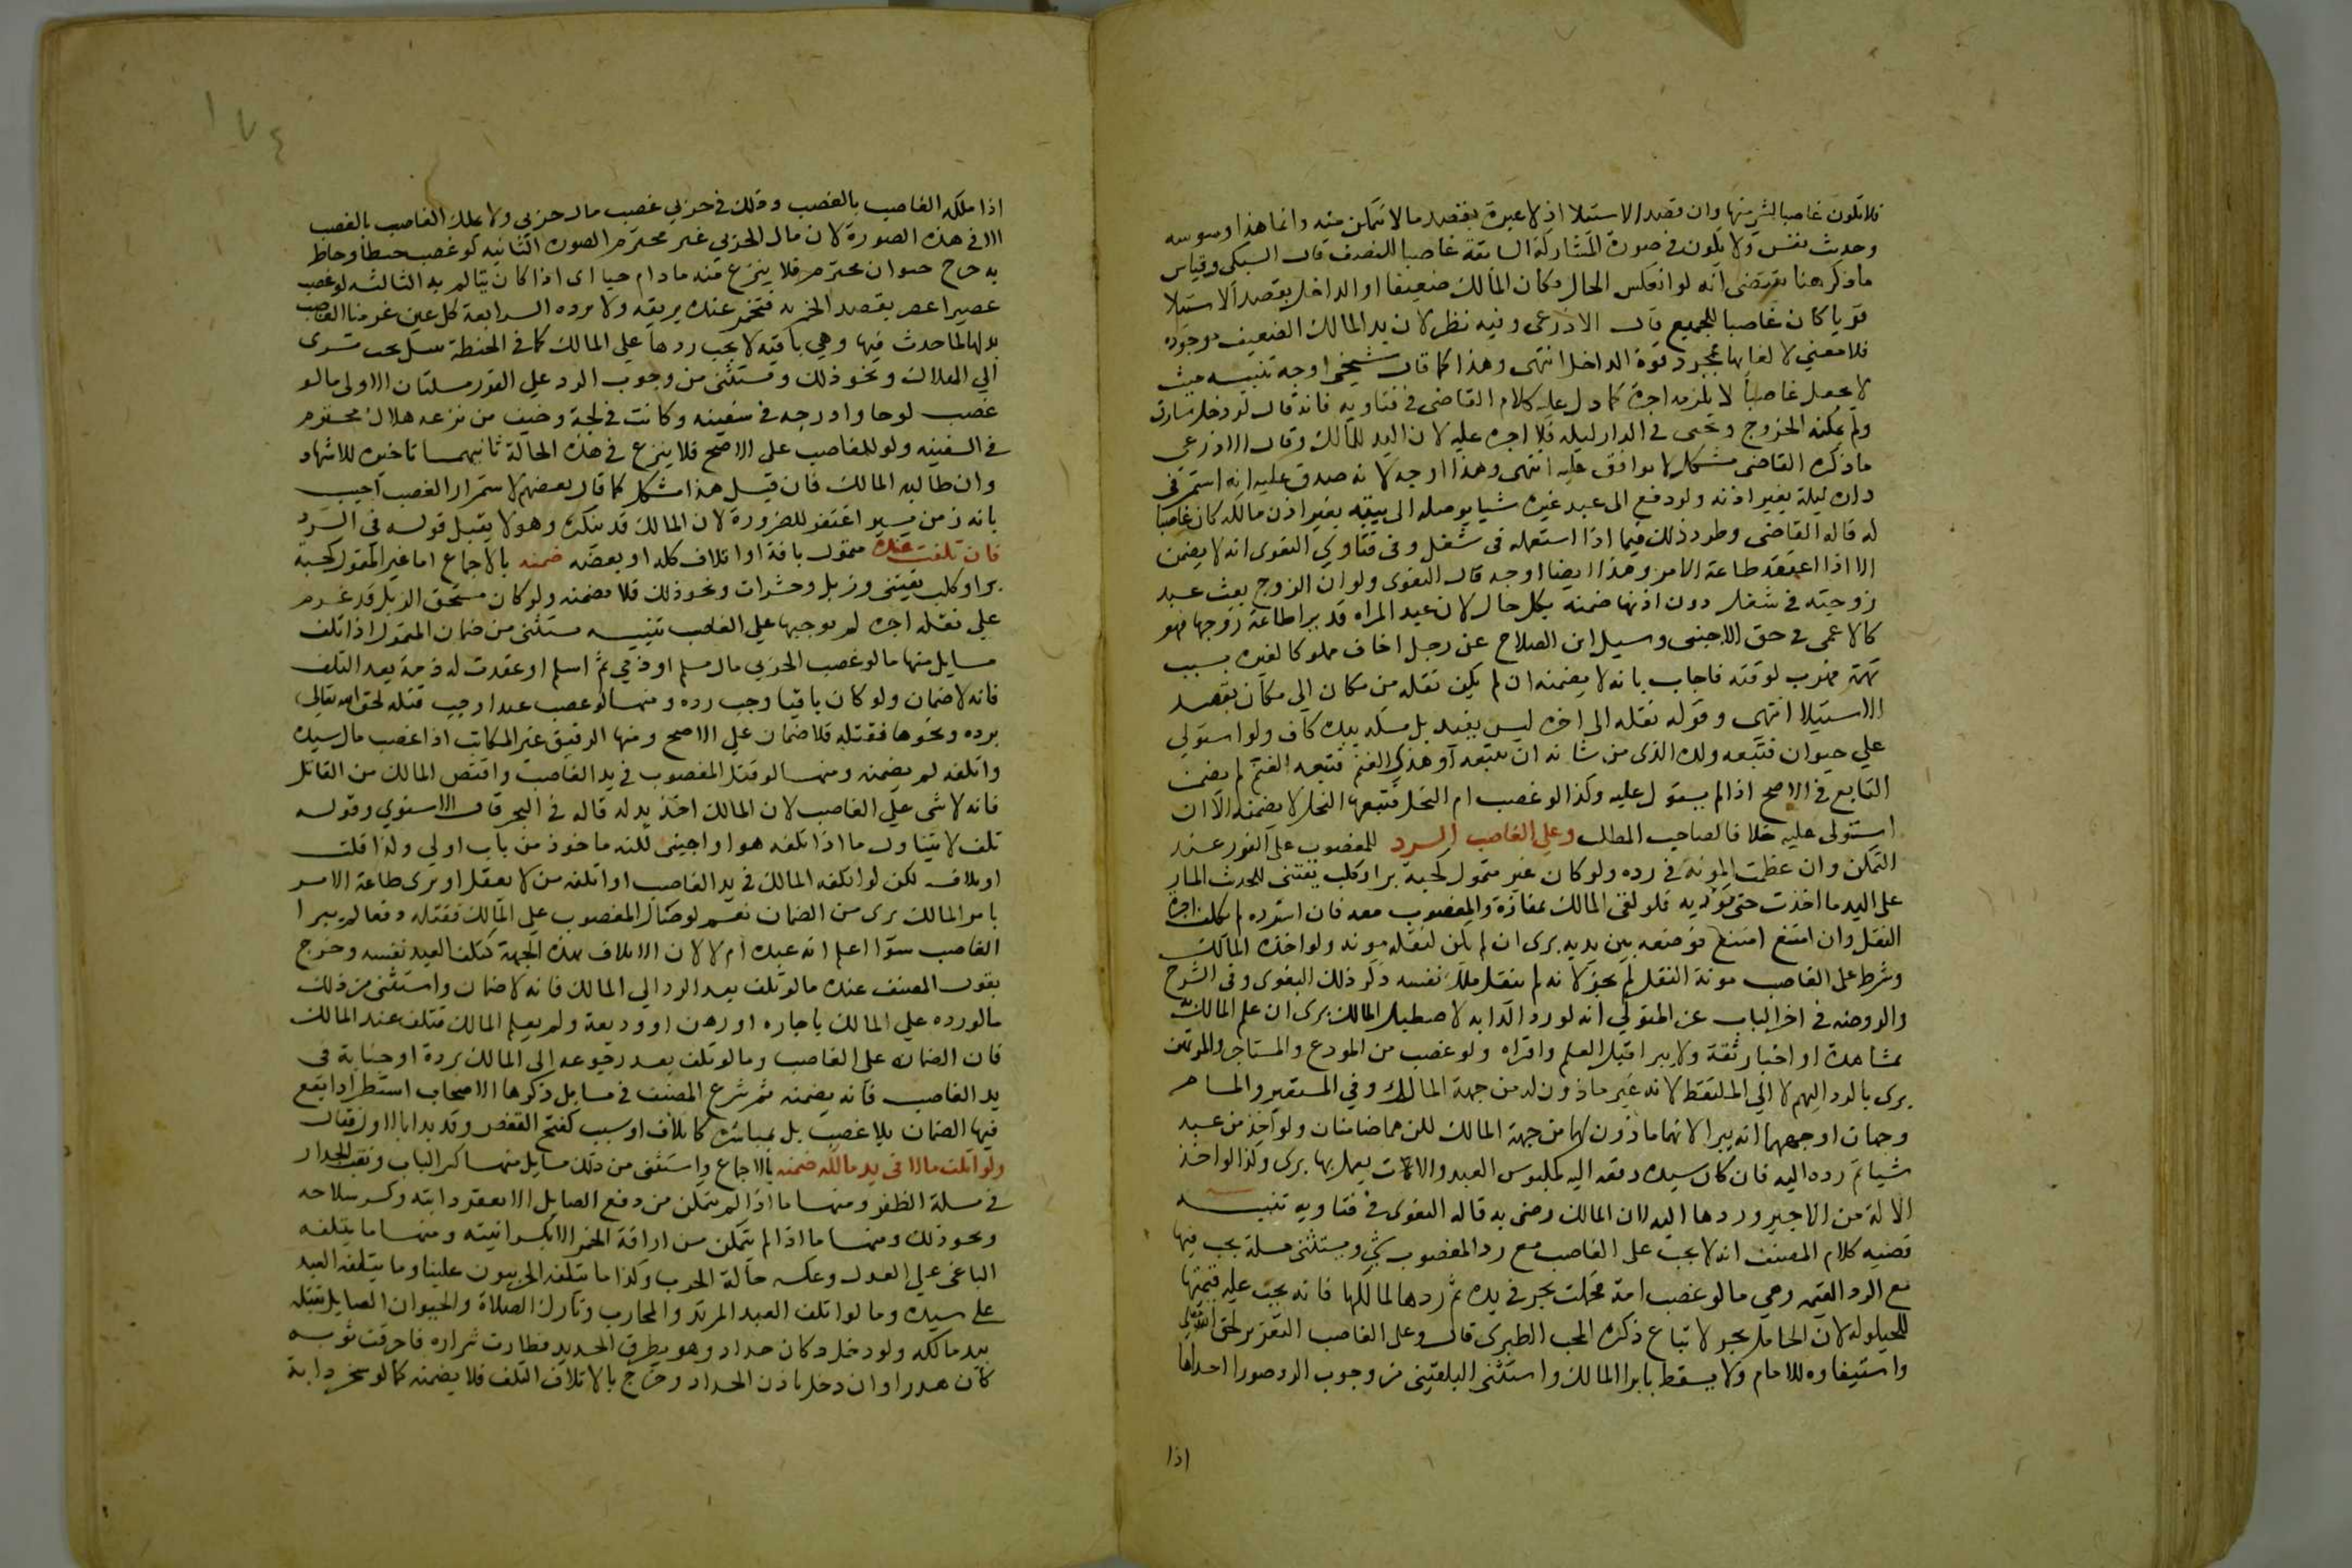 فلا يكون غاصبا لشي منها وان قصد الاستيلا اذ لا عبرة بقصد ما لا يتمكن منه وانما هذا وسوسه
وحديث نفس ولا يكون في صورة المشاركة السابقة غاصبا للنصف قال السبكي وقياس
ما ذكر هنا يقتضى انه لو انعكس الحال وكان المالك ضعيفا او الداخل بقصد الاستيلا
قويا كان غاصبا للجميع قال الاذرعى وفيه نظر لان يد المالك الضعيف موجوده
فلا معني لالغايها بمجرد قوة الداخل انتهى وهذا كما قال شيخى اوجه تنبيه حيث
لا يجعل غاصبا لا يلزمه اجرة كما دل عليه كلام القاضى في فتاويه فانه قال لو دخل سارق
ولم يمكنه الخروج وتخبى في الدار ليله فلا اجره عليه لان اليد للمالك وقال الاذرعى
ما ذكره القاضى مشكل لا يوافق عليه انتهى وهذا اوجه لانه صدق عليه انه استمر في
داره ليلة بغير اذنه ولو دفع الى عبد غيره شيا يوصله الى بيته بغير اذن مالكه كان غاصبا
له قاله القاضى وطرد ذلك فيما اذا استعمله فى شغل وفى فتاوي البغوى انه لا يضمن
الا اذا اعتقد طاعة الامر وهذا ايضا اوجه قال البغوى ولو ان الزوج بعث عبد
زوجته في شغل دون اذنها ضمنه بكل حال لان عبد المراه قد يرا طاعة زوجها فهو
كالاعجمى في حق الاجنبى وسيل ابن الصلاح عن رجل اخاف مملوكا لغيره بسبب
تهمة فهرب لوقته فاجاب بانه لا يضمنه ان لم يكن نقله من مكان الي مكان بقصد
الاستيلا انتهى وقوله نقله الى اخره ليس بقيد بل مسكه بيده كاف ولو استولي
علي حيوان فتبعه ولده الذى من شانه ان يتبعه او هذي الغنم فتبعه الغنم لم يضمن
التابع في الاصح اذا لم يستول عليه وكذا لو غصب ام النحل فتبعها النحل لا يضمنه الا ان
استولى عليه خلافا لصاحب المطلب وعلي الغاصب الرد للمغصوب على الفور عند
التمكن وان عظمت المونة في رده ولو كان غير متمول كحبة بر او كلب يقتنى للحديث المار
على اليد ما اخذت حتى توديه فلو لقى المالك بمفازة والمغصوب معه فان استرده لم يكلف اجرة
النقل وان امتنع فوضعه بين يديه برى ان لم يكن لنقله مونه ولو اخذه المالك
وشرط على الغاصب مونة النقل لم يجز لانه لم ينقل ملك نفسه ذكر ذلك البغوى وفى الشرح
والروضه في اخر الباب عن المتولي انه لو رد الدابه لاصطبل المالك برى ان علم المالك به
بمشاهدة او اخبار ثقة ولا يبرا قبل العلم واقراه ولو غصب من المودع والمستاجر والمرتهن
برى بالرد اليهم لا الي الملتقط لانه غير ماذون له من جهة المالك وفي المستعير والمستام
وجهان اوجههما انه يبرا لانهما ماذون لهما من جهة المالك لكن هما ضامنان ولو اخذ من عبد
شيا ثم رده اليه فان كان سيده دفعه اليه كملبوس العبد والالات يعمل بها برى وكذا لو اخذ
الالة من الاجير وردها اليه لان المالك رضى به قاله البغوى في فتاويه تنبيه
قضيه كلام المصنف انه لا يجب على الغاصب مع رد المغصوب شي ويستثنى مسلة يجب فيها
مع الرد القيمه وهي ما لو غصب امة فحملت بحر في يده ثم ردها لمالكها فانه يجب عليه قيمتها
للحيلولة لان الحامل بحر لا تباع ذكره المحب الطبرى قال وعلى الغاصب التعزير لحق الله تعالى
واستيفاوه للامام ولا يسقط بابرا المالك واستثنى البلقيني من وجوب الرد صورا احداها
اذا
١٧٤
اذا ملكه الغاصب بالغصب وذلك في حربي غصب مال حربي ولا يملك الغاصب بالغصب
الا في هذه الصورة لان مال الحربي غير محترم الصوره الثانيه لو غصب خيطا وخاط
به جرح حيوان محترم فلا ينزع منه ما دام حيا اى اذا كان يتالم به الثالثه لو غصب
عصيرا عصر بقصد الخمريه فتخمر عنده يريقه ولا يرده الرابعة كل عين غرمنا الغاصب
بدلها لما حدث فيها وهي باقيه لا يجب ردها علي المالك كما في الحنطة تبل بحيث تسرى
الي الهلاك ونحو ذلك ويستثنى من وجوب الرد على الفور مسلتان الاولى ما لو
غصب لوحا وادرجه في سفينه وكانت في لجة وخيف من نزعه هلاك محترم
في السفينه ولو للغاصب على الاصح فلا ينزع في هذه الحالة ثانيهما تاخيره للاشهاد
وان طالبه المالك فان قيل هذا مشكل كما قال بعضهم لاستمرار الغصب اجيب
بانه زمن يسير اغتفر للضرورة لان المالك قد ينكره وهو لا يقبل قوله في الرد
فان تلفت عنده متمول بافة او اتلاف كله او بعضه ضمنه بالاجماع اما غير المتمول كحبة
بر او كلب يقتنى وزبل وحشرات ونحو ذلك فلا يضمنه ولو كان مستحق الزبل قد غرم
علي نقله اجره لم نوجبها علي الغاصب تنبيه يستثنى من ضمان المتمول اذا تلف
مسايل منها ما لو غصب الحربي مال مسلم او ذمي ثم اسلم او عقدت له ذمة بعد التلف
فانه لا ضمان ولو كان باقيا وجب رده ومنها لو غصب عبدا وجب قتله لحق الله تعالى
برده ونحوها فقتله فلا ضمان على الاصح ومنها الرقيق غير المكاتب اذا غصب مال سيده
واتلفه لم يضمنه ومنها لو قتل المغصوب في يد الغاصب واقتص المالك من القاتل
فانه لا شى علي الغاصب لان المالك اخذ بدله قاله في البحر قال الاسنوي وقوله
تلف لا يتناول ما اذا اتلفه هو او اجنبى لكنه ماخوذ من باب اولي ولذا قلت
او باتلاف لكن لو اتلفه المالك في يد الغاصب او اتلفه من لا يعقل او يرى طاعة الامر
بامر المالك برى من الضمان نعم لو صال المغصوب علي المالك فقتله دفعا لم يبرا
الغاصب سوا اعلم انه عبده ام لا لان الاتلاف بهذه الجهة كتلف العبد نفسه وخرج
بقول المصنف عنده ما لو تلف بعد الرد الي المالك فانه لا ضمان واستثنى من ذلك
ما لو رده علي المالك باجاره او رهن او وديعة ولم يعلم المالك فتلف عند المالك
فان الضمان على الغاصب وما لو تلف بعد رجوعه الي المالك بردة او جناية فى
يد الغاصب فانه يضمنه ثم شرع المصنف في مسايل ذكرها الاصحاب استطرادا يقع
فيها الضمان بلا غصب بل بمباشرة كاتلاف او سبب كفتح القفص وقد بدا بالاول فقال
ولو اتلف مالا فى يد مالكه ضمنه بالاجماع واستثنى من ذلك مسايل منها كسر الباب ونقب الجدار
في مسلة الظفر ومنها ما اذا لم يتمكن من دفع الصايل الا بعقر دابته وكسر سلاحه
ونحو ذلك ومنها ما اذا لم يتمكن من اراقة الخمر الا بكسر انيته ومنها ما يتلفه
الباغى علي العدل وعكسه حالة الحرب وكذا ما يتلفه الحربيون علينا وما يتلفه العبد
على سيده وما لو اتلف العبد المرتد والمحارب وتارك الصلاة والحيوان الصايل بقتله
بيد مالكه ولو دخل دكان حداد وهو يطرق الحديد فطارت شراره فاحرقت ثوبه
كان هدرا وان دخل باذن الحداد وخرج بالاتلاف التلف فلا يضمنه كما لو سخر دابة